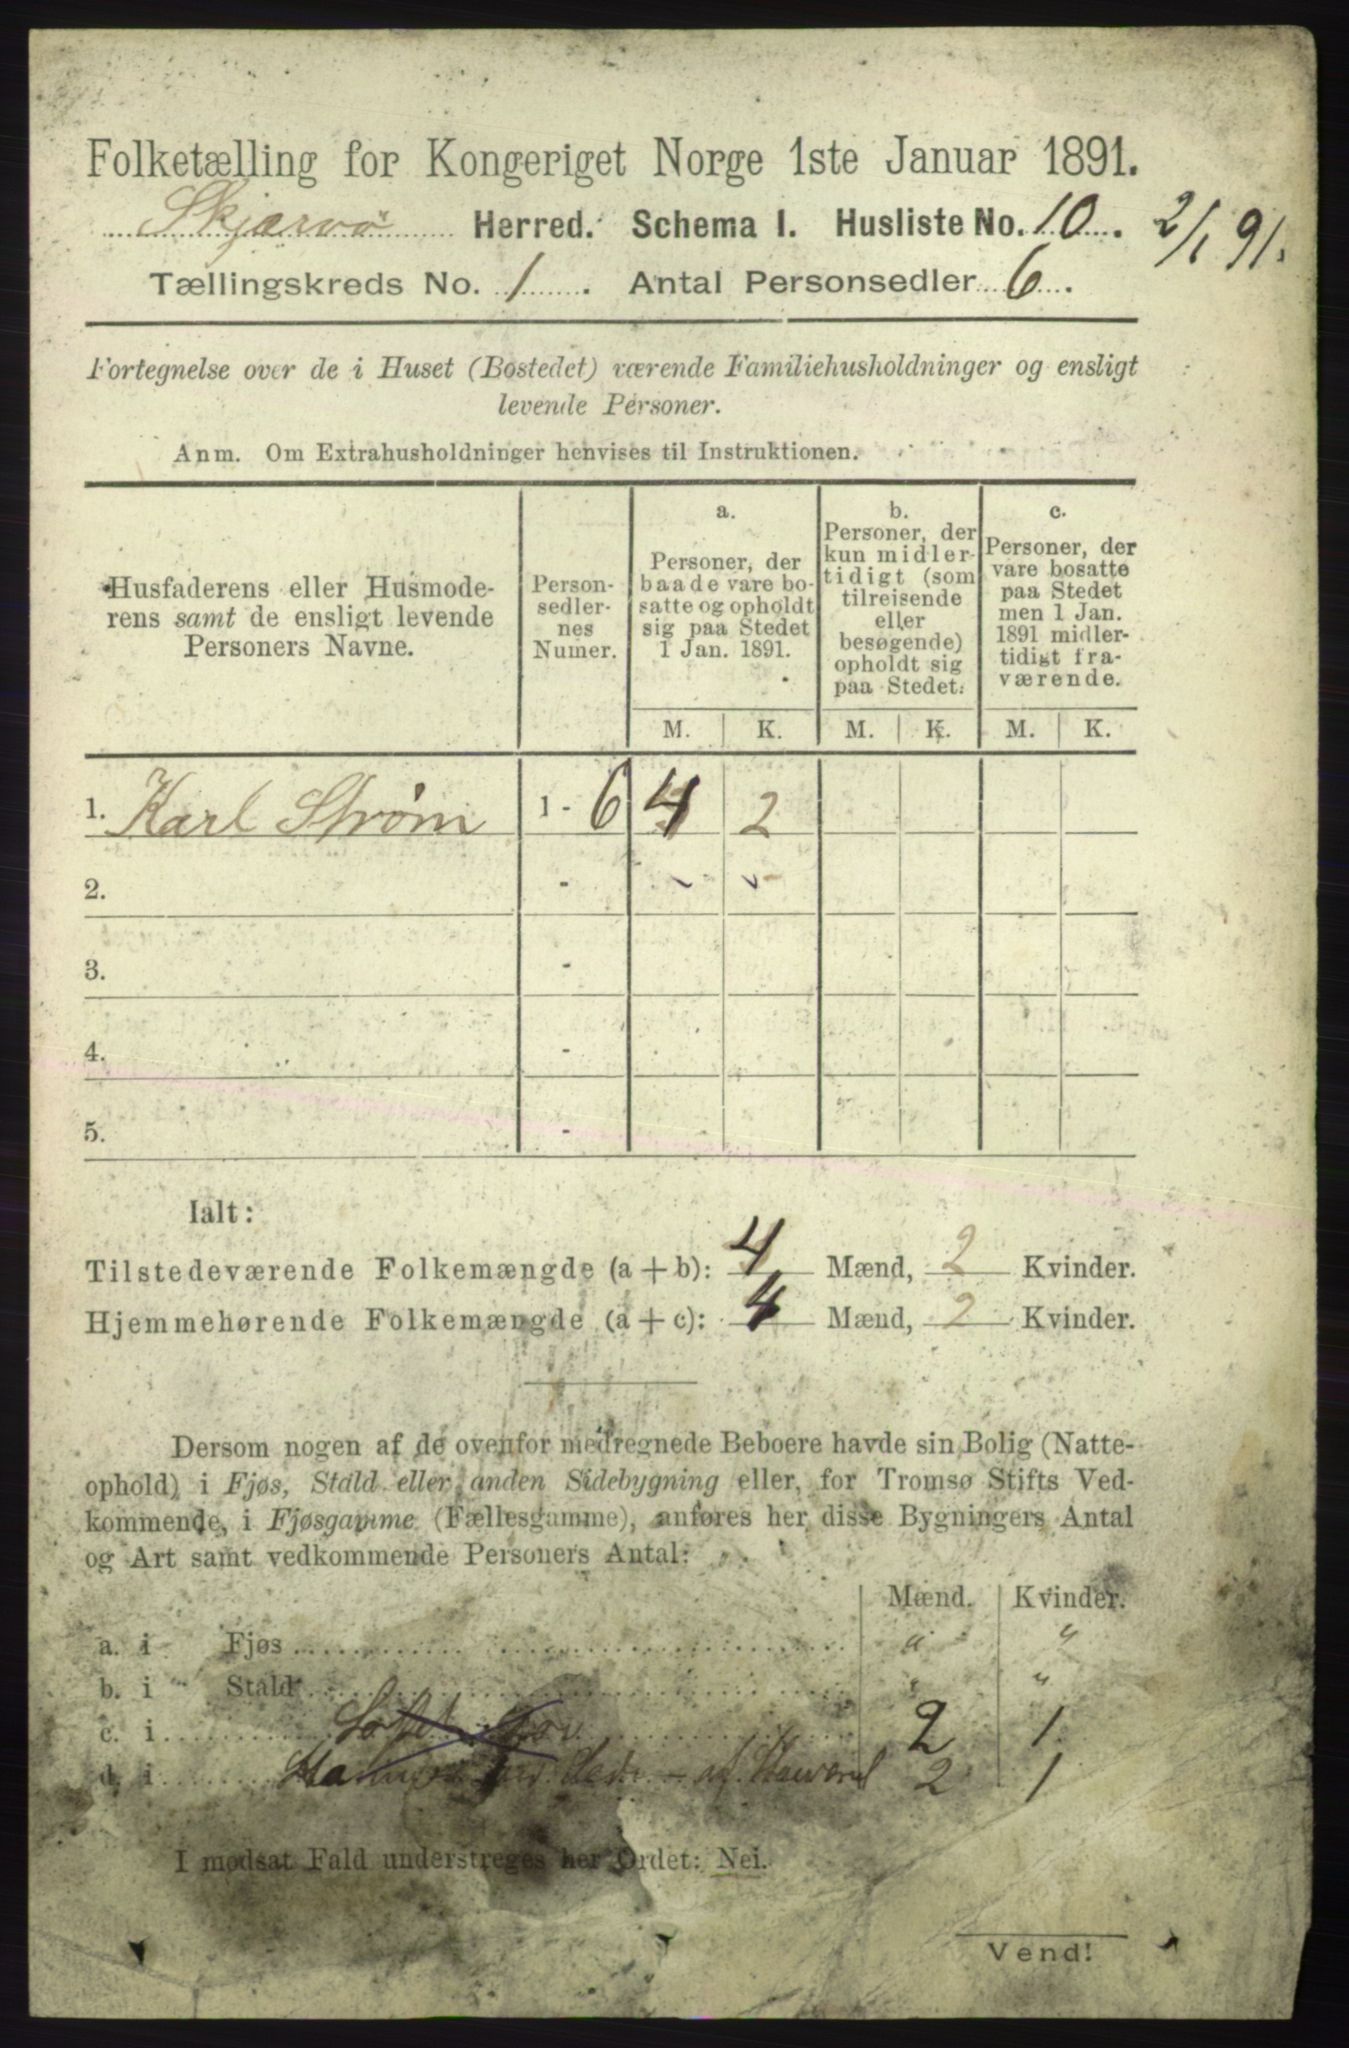 Folketælling for Kongeriget Norge 1ste Januar 1891.
Skjærvø Herred. Schema I. Husliste No. 10. 2/1 91.
Tællingskreds No. 1. Antal Personsedler 6.
Fortegnelse over de i Huset (Bostedet) værende Familiehusholdninger og ensligt
levende Personer.
Anm. Om Extrahusholdninger henvises til Instruktionen.
Husfaderens eller Husmode-
rens samt de ensligt levende
Personers Navne.
Person-
sedler-
nes
Numer.
a.
Personer, der
baade vare bo-
satte og opholdt
sig paa Stedet
1 Jan. 1891.
b.
Personer, der
kun midler-
tidigt (som
tilreisende
eller
besøgende)
opholdt sig
paa Stedet:
c.
Personer, der
vare bosatte
paa Stedet
men 1 Jan.
1891 midler-
tidigt fra-
værende.
M. K. M. K. M. K.
1. Karl Strøm 1 - 6 4 2
2. -
3. -
4. -
5. -
Ialt:
Tilstedeværende Folkemængde (a + b): 4 Mænd, 2 Kvinder.
Hjemmehørende Folkemængde (a + c): 4 Mænd, 2 Kvinder.
Dersom nogen af de ovenfor medregnede Beboere havde sin Bolig (Natte-
ophold) i Fjøs, Stald eller anden Sidebygning eller, for Tromsø Stifts Ved-
kommende, i Fjøsgamme (Fællesgamme), anføres her disse Bygningers Antal
og Art samt vedkommende Personers Antal:
Mænd. Kvinder.
a. i Fjøs " "
b. i Stald " "
c. i 2 1
d. i 2 1
I modsat Fald understreges her Ordet: Nei.
Vend!